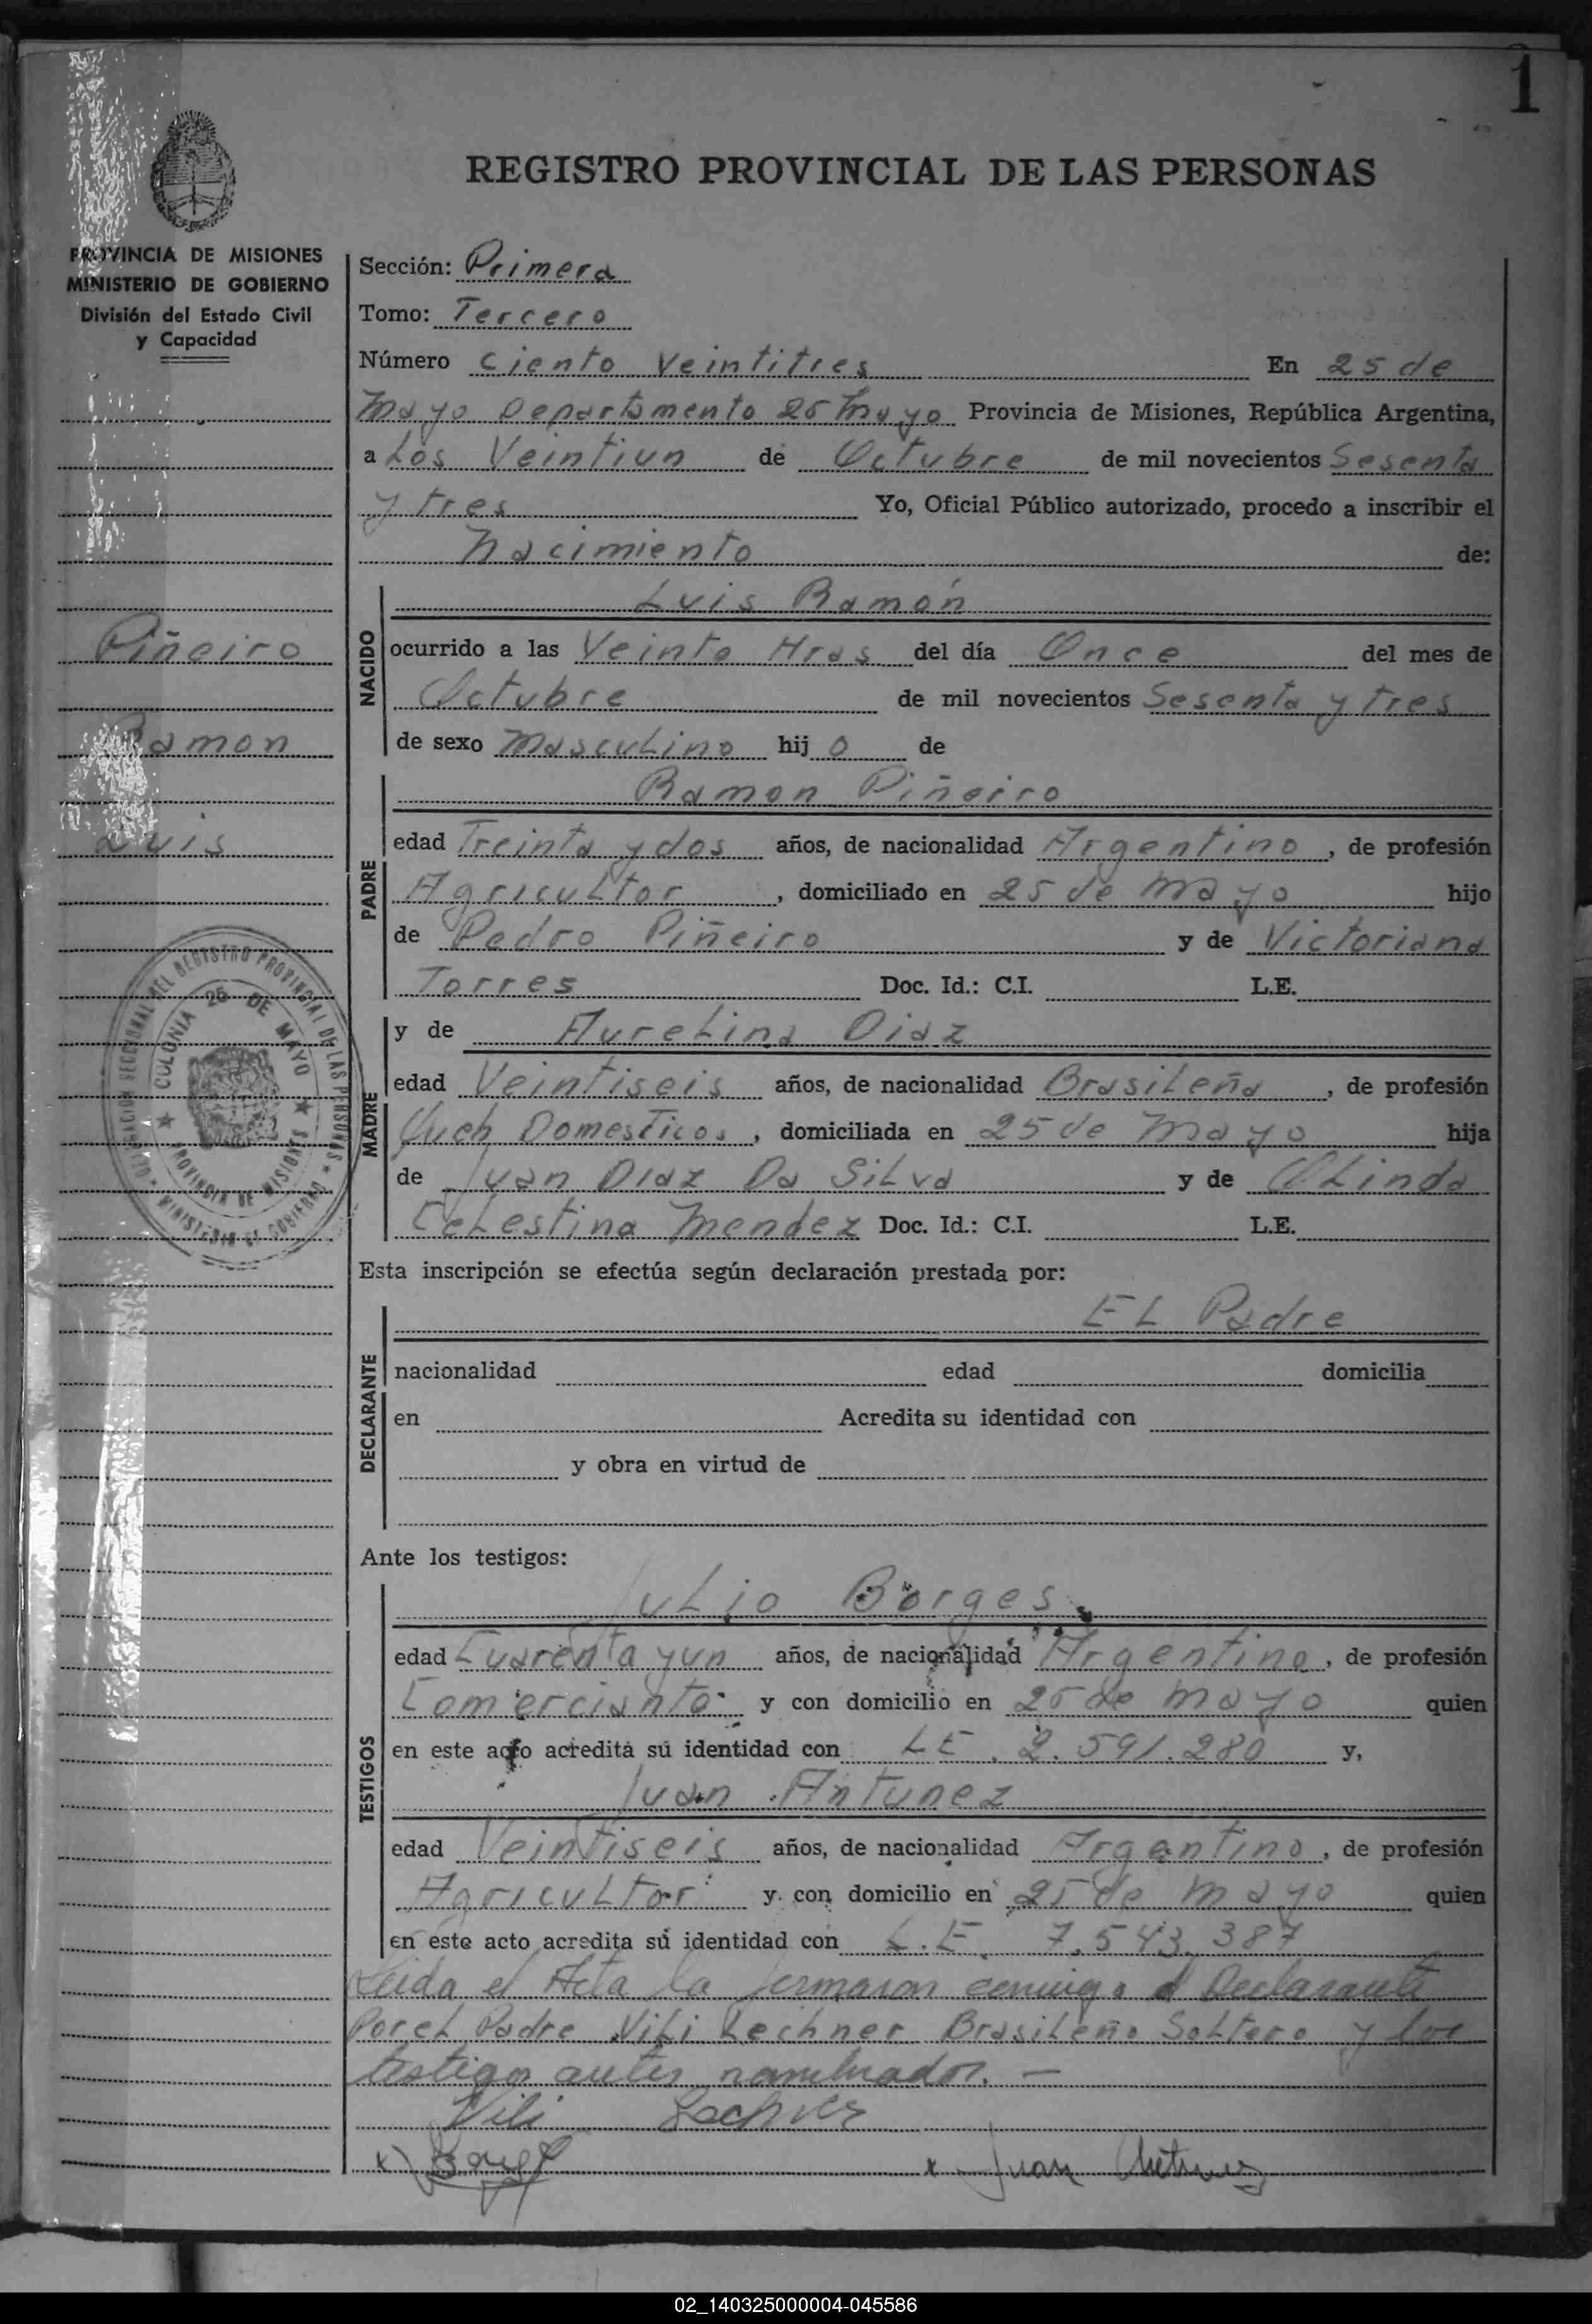 1
REGISTRO PROVINCIAL DE LAS PERSONAS
PROVINCIA DE MISIONES
MINISTERIO DE GOBIERNO
División del Estado Civil
y Capacidad
Piñeiro
Ramon
Luis
DELEGACION SECCIONAL DEL REGISTRO PROVINCIAL DE LAS PERSONAS
COLONIA 25 DE MAYO
PROVINCIA DE MISIONES
MINISTERIO DE GOBIERNO
Sección: Primera
Tomo: Tercero
Número Ciento Veintitres En 25 de
Mayo Departamento 25 Mayo Provincia de Misiones, República Argentina,
a Los Veintiun de Octubre de mil novecientos Sesenta
y tres Yo, Oficial Público autorizado, procedo a inscribir el
Nacimiento de:
NACIDO
Luis Ramón
ocurrido a las Veinte Hras del día Once del mes de
Octubre de mil novecientos Sesenta y tres
de sexo Masculino hij o de
PADRE
Ramon Piñeiro
edad Treinta y dos años, de nacionalidad Argentino, de profesión
Agricultor, domiciliado en 25 de Mayo hijo
de Pedro Piñeiro y de Victoriana
Torres Doc. Id.: C.I. L.E.
MADRE
y de Aurelina Diaz
edad Veintiseis años, de nacionalidad Brasileña, de profesión
Domesticos, domiciliada en 25 de Mayo hija
de Juan Diaz Da Silva y de Olinda
Celestina Mendez Doc. Id.: C.I. L.E.
Esta inscripción se efectúa según declaración prestada por:
DECLARANTE
El Padre
nacionalidad edad domicilia
en Acredita su identidad con
y obra en virtud de
Ante los testigos:
TESTIGOS
Julio Borges
edad Cuarenta y un años, de nacionalidad Argentino, de profesión
Comerciante y con domicilio en 25 de Mayo quien
en este acto acredita su identidad con LE. 2.591.280 y,
Juan Antunez
edad Veintiseis años, de nacionalidad Argentino, de profesión
Agricultor y con domicilio en 25 de Mayo quien
en este acto acredita su identidad con L.E. 7.543.387
Leida el Acta la firmaron conmigo el Declarante
Por el Padre Vili Lechner Brasileño Soltero y los
testigos antes nombrados. —
Vili Lechner
x) Borges x Juan Antunez
02_140325000004-045586